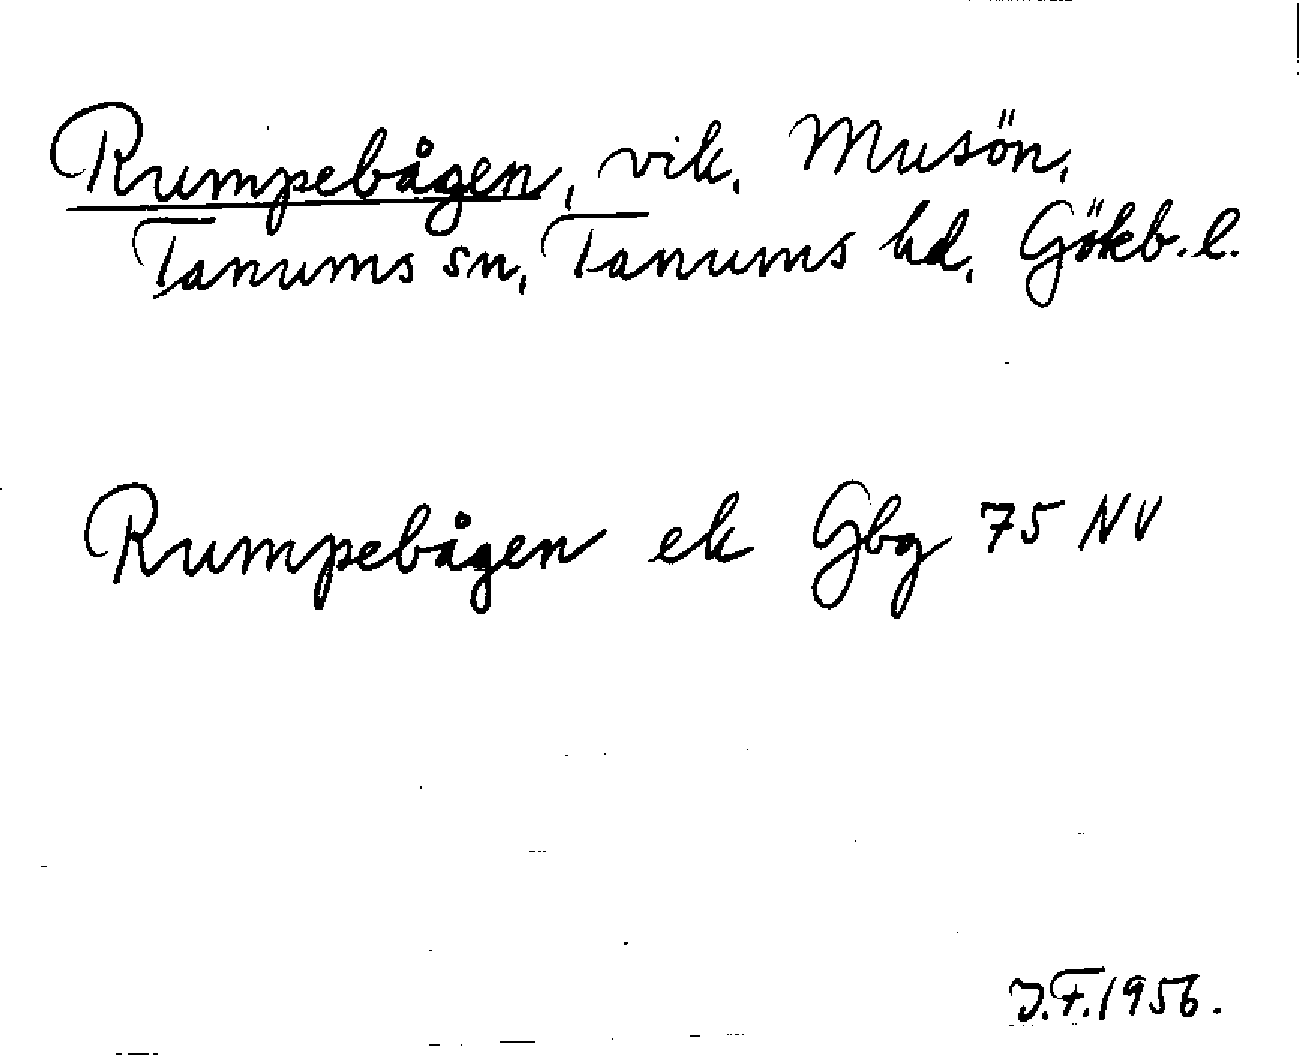 Rumpebågen, vik, Musön,
Tanums sn, Tanums hd, Gökb. l.
Rumpebågen ek Gbg 75 NV
J.F. 1956.